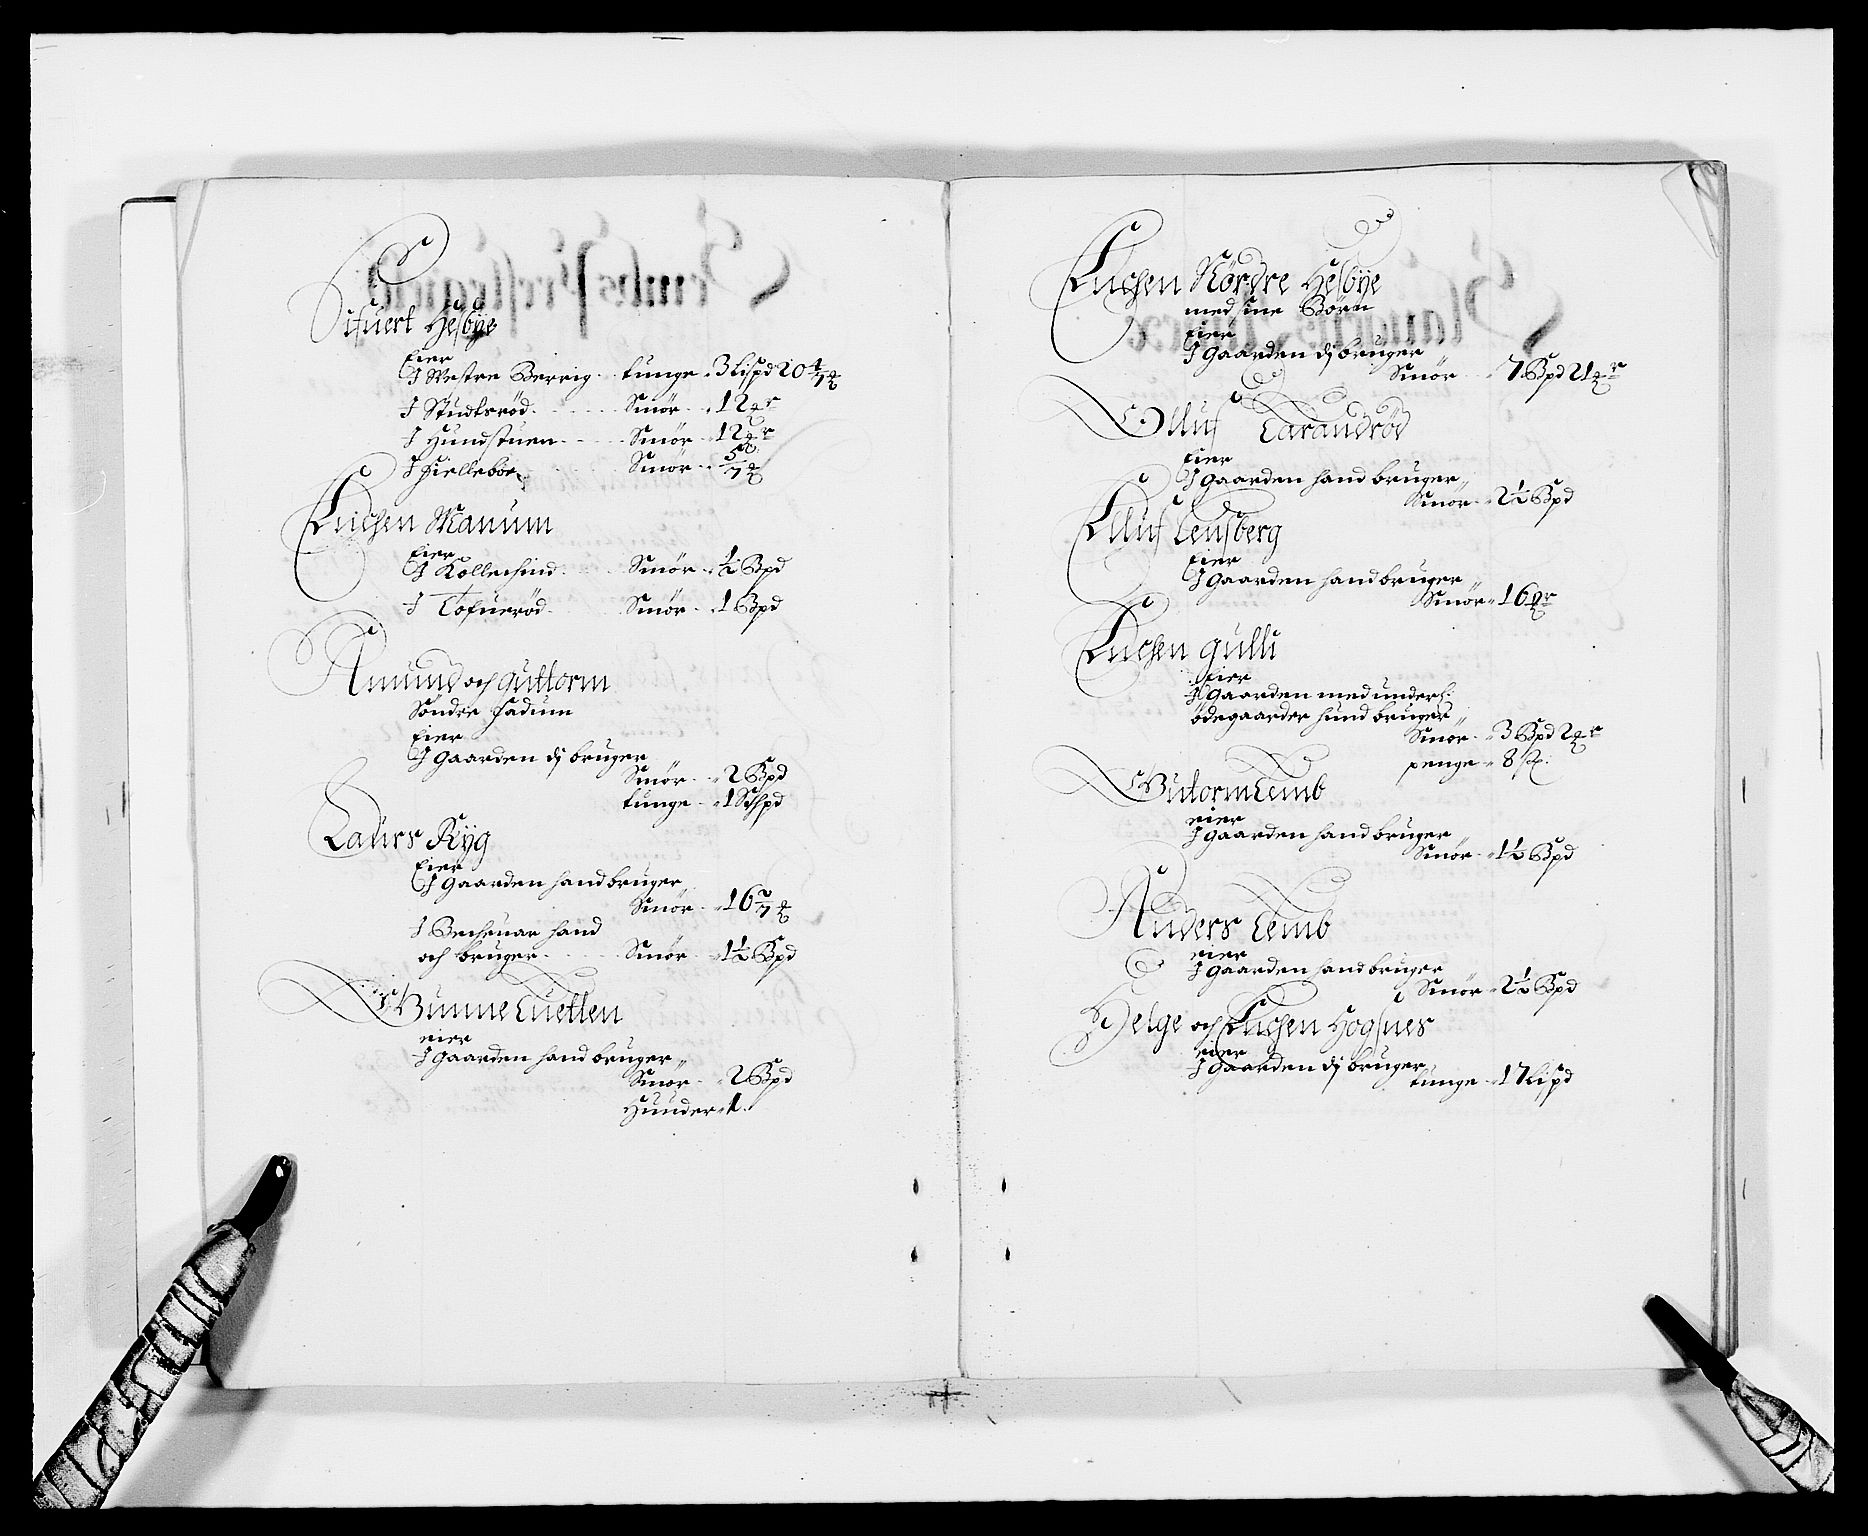 Sifuert Hesbye
Eier
J Westre Berrig tunge 3 Lispd 20 4/7 ℔
J Studsrød Smör 12 ℔r
J Hundstuen Smör 12 ℔r
J Fielleboe Smör 5/7 ℔
Enchen Manum
Eier
J Kollechind Smör ½ Bpd
J Tofuerød Smör 1 Bpd
Amund och Guttorm
Söndre Fadum
Eier
J Gaarden dj bruger
Smör 2 Bpd
tunge 1 Schpd
Laurs Ryg
Eier
J Gaarden hand bruger
Smör 16 2/7 ℔
J Bechenar hand
och bruger Smör 1½ Bpd
Gunne Luetten
eier
J Gaarden hand bruger
Smör 2 Bpd
Huuder 1.
Enchen Nørdre Hesbye
med sine Börn
Eier
J Gaarden dj bruger
Smör 7 Bpd 21 ℔r
Olluf Tarandrød
Eier
J Gaarden hand bruger
Smör 2½ Bpd
Elluf Lensberg
Eier
J Gaarden hand bruger
Smör 16 ℔r
Enchen Gulli
Eier
J Gaarden med underl:
ödegaarder hund bruger
Smör 3 Bpd 2 ℔r
penge 8 sk:
Gutorm Lemb
eier
J Gaarden hand bruger
Smör 1½ Bpd
Anders Lemb
eier
J Gaarden hand bruger
Smör 2½ Bpd
Helge och Enchen Hogsnes
eier
J Gaarden dj bruger
tunge 17 Lispd